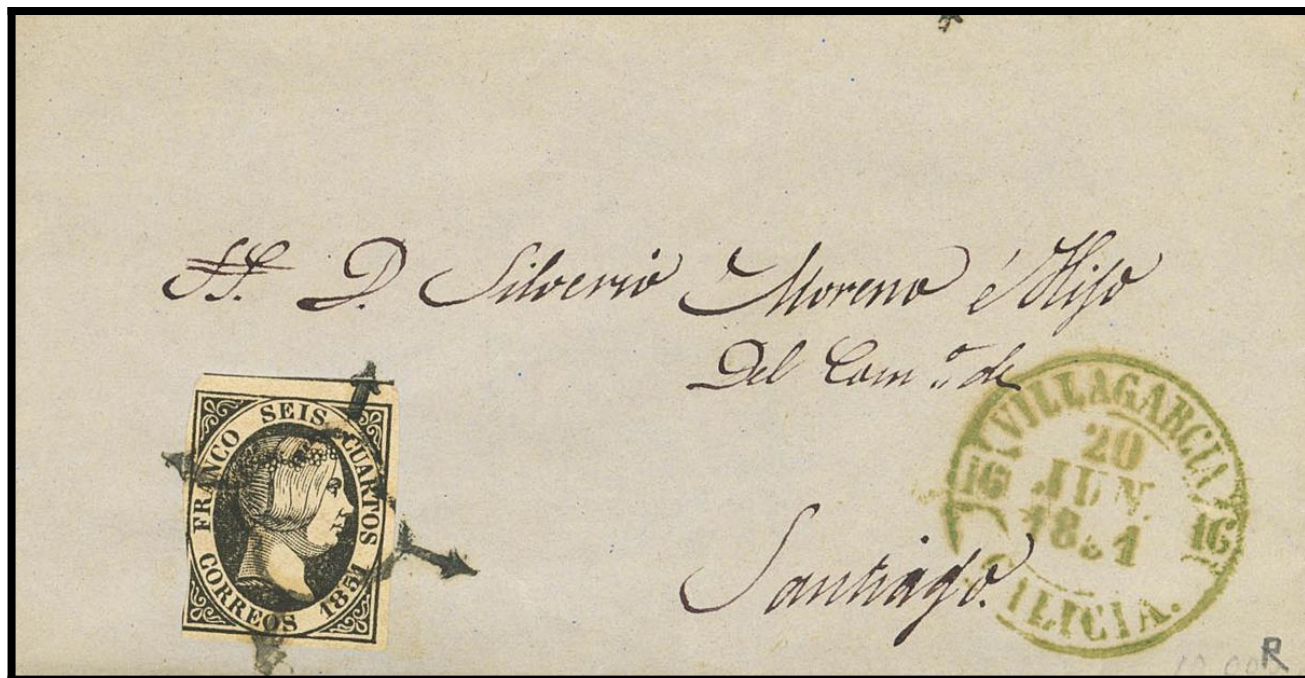 SS. D. Silverio Moreno é Hijo
Del Com.º de
Santiago.
FRANCO SEIS CUARTOS
CORREOS 1851
(VILLAGARCIA)
20
16 JUN 16
1851
GALICIA.
R